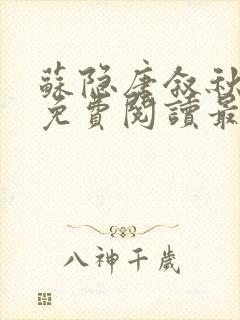 蘇隐唐叙秋
免費閱讀最
八神千歲